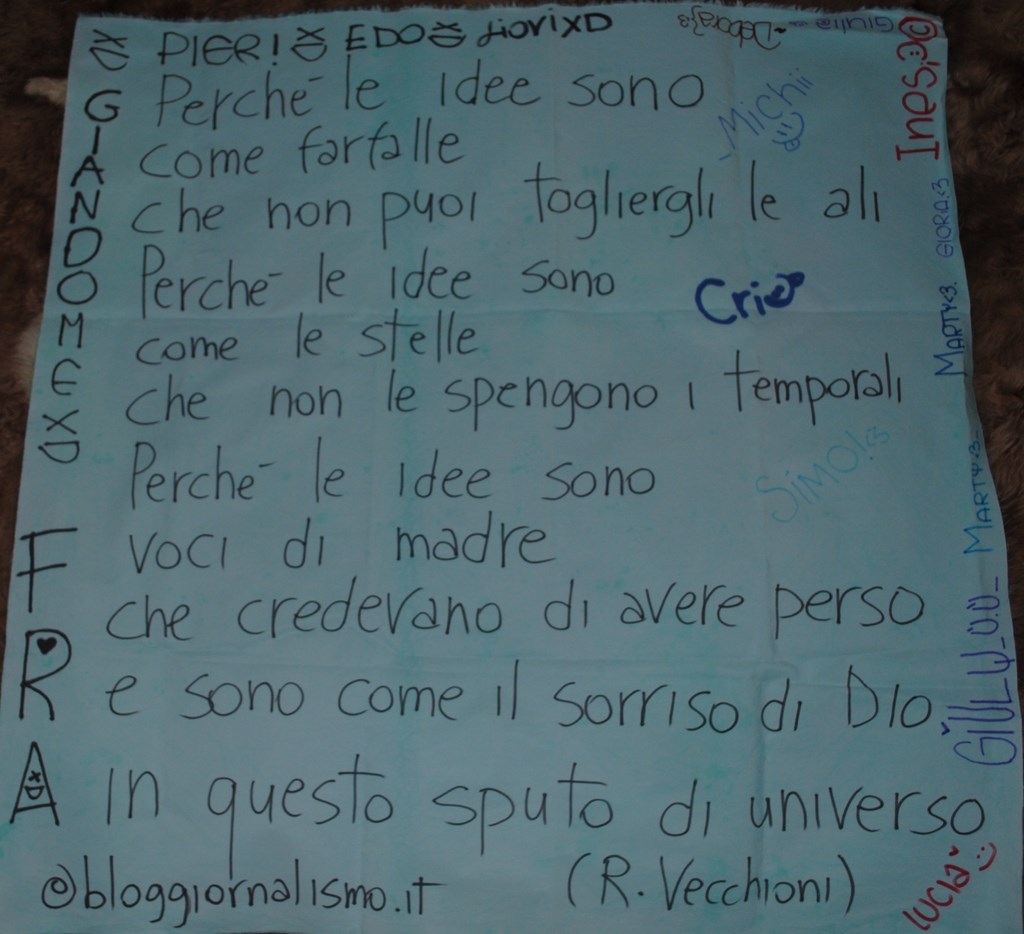 XD PIER! XD EDO XD GiorixD
Deboraf<3
Giulia
Ines
GIANDOMEXD
Perchè le idee sono
come farfalle
-Michii
che non puoi togliergli le ali
GIORA<3
Perchè le idee sono
Cric
MARTY<3
come le stelle
che non le spengono i temporali
Perchè le idee sono
SIMO!<3
MARTY<3
FRA
voci di madre
che credevano di avere perso
GIULY_U.U_
e sono come il sorriso di Dio
In questo sputo di universo
@bloggiornalismo.it (R. Vecchioni)
LUCIA